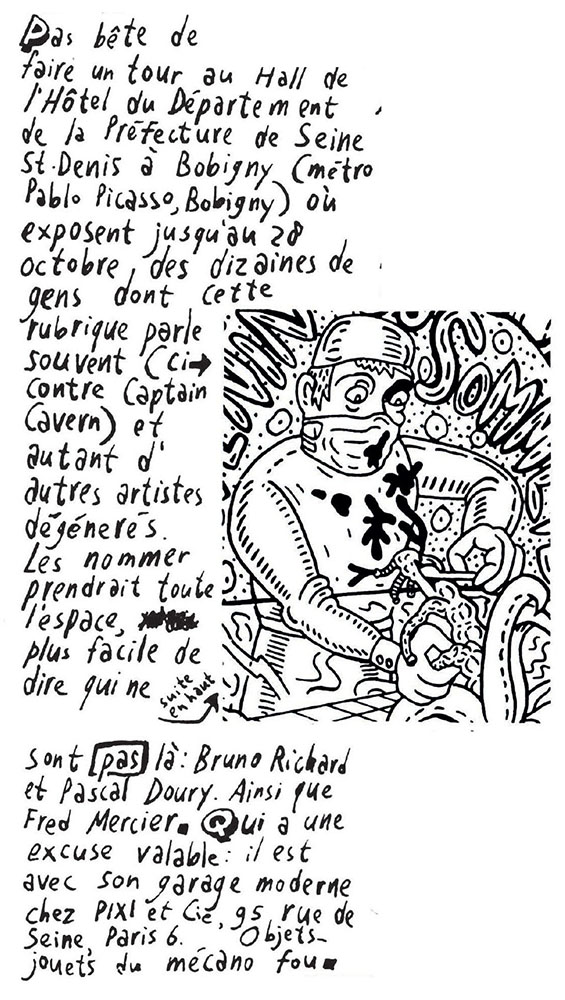 Pas bête de
faire un tour au Hall de
l'Hôtel du Département
de la Préfecture de Seine
St-Denis à Bobigny (métro
Pablo Picasso, Bobigny) où
exposent jusqu'au 28
octobre, des dizaines de
gens dont cette
rubrique parle
souvent (ci→
contre Captain
Cavern) et
autant d'
autres artistes
dégénerés.
Les nommer
prendrait toute
l'espace,
plus facile de
dire qui ne
suite
en haut
sont pas là: Bruno Richard
et Pascal Doury. Ainsi que
Fred Mercier. Qui a une
excuse valable: il est
avec son garage moderne
chez PIXI et Cie, 95 rue de
Seine, Paris 6. Objets-
jouets du mécano fou.